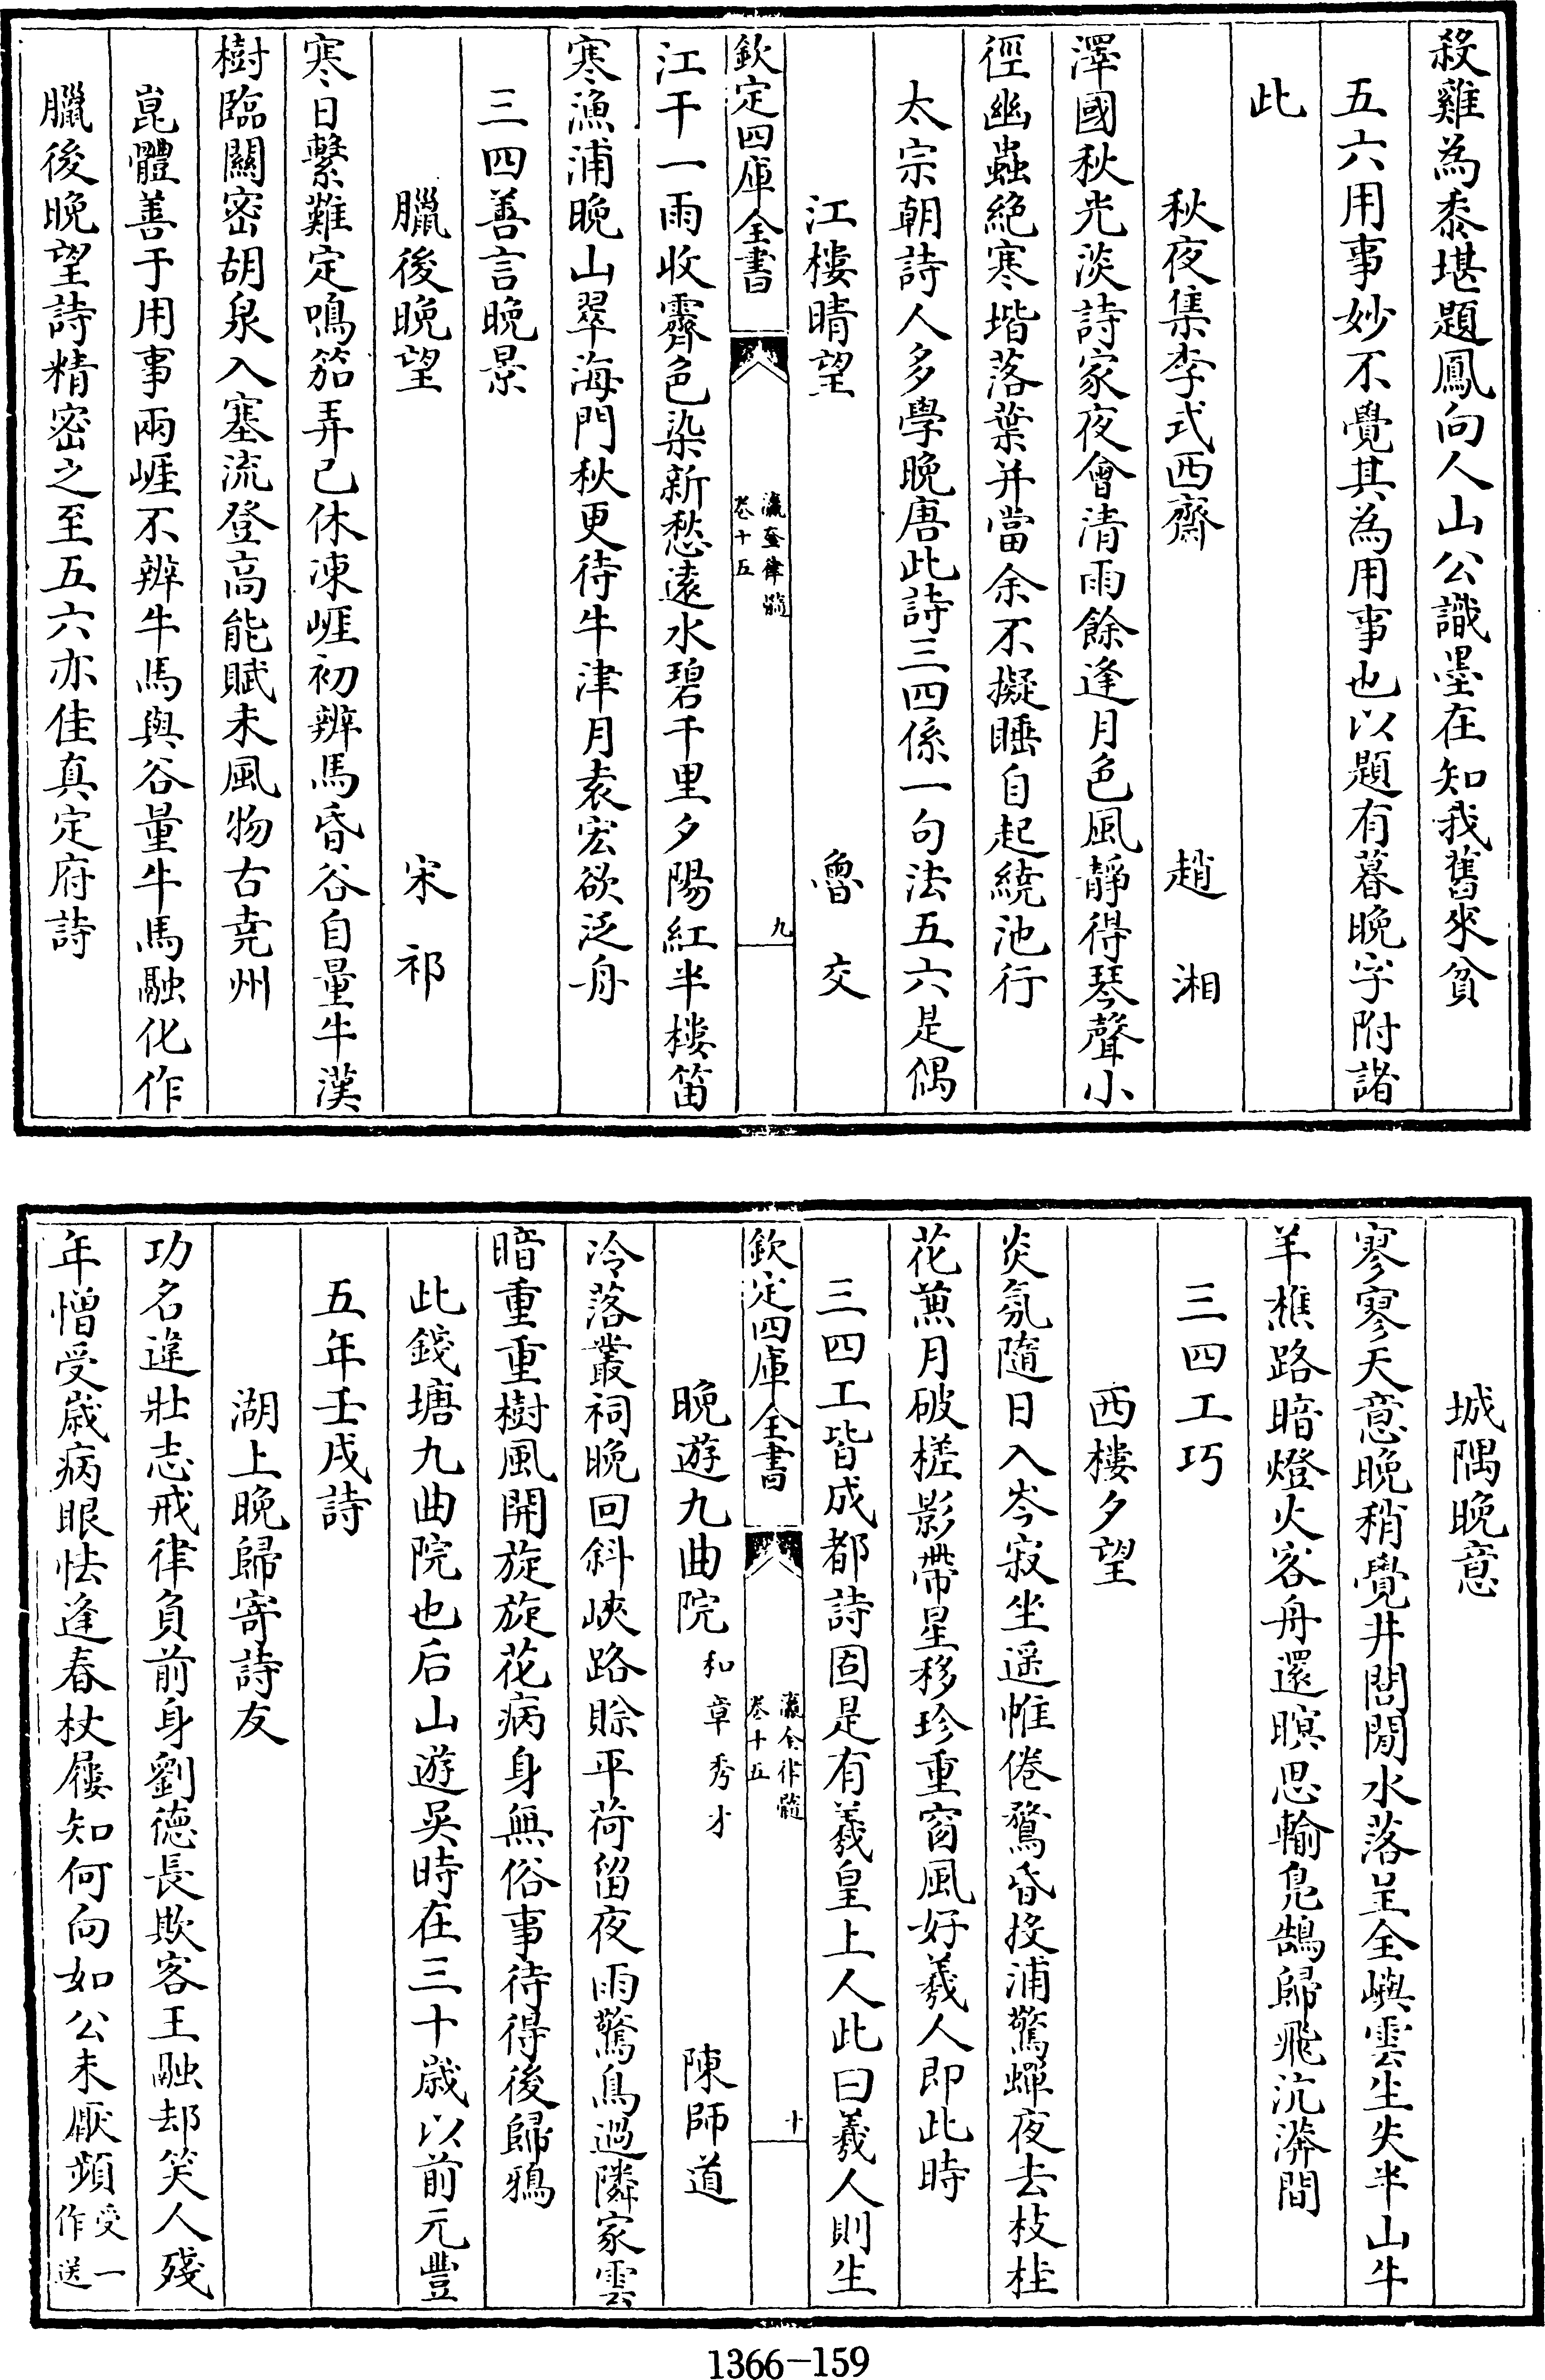 殺雞為黍堪題鳳向人山公識墨在知我舊來貧
五六用事妙不覺其為用事也以題有暮晚字附諸
此
秋夜集李式西齋 趙湘
澤國秋光淡詩家夜會清雨餘逢月色風靜得琴聲小
徑幽蟲絶寒堦落葉并當余不擬睡自起繞池行
太宗朝詩人多學晚唐此詩三四係一句法五六是偶
江樓晴望 魯交
欽定四庫全書 瀛奎律髓 卷十五 九
江干一雨收霽色染新愁遠水碧千里夕陽紅半樓笛
寒漁浦晚山翠海門秋更待牛津月袁宏欲泛舟
三四善言晚景
臘後晚望 宋祁
寒日繫難定鳴笳弄已休凍崕初辨馬昏谷自量牛漢
樹臨關密胡泉入塞流登高能賦未風物古堯州
崑體善于用事兩崕不辨牛馬與谷量牛馬融化作
臘後晚望詩精密之至五六亦佳真定府詩
城隅晚意
寥寥天意晚稍覺井閭閒水落呈全嶼雲生失半山牛
羊樵路暗燈火客舟還暝思輸鳧鵠歸飛沆漭間
三四工巧
西樓夕望
炎氛隨日入岑寂坐遥帷倦鶩昏投浦驚蟬夜去枝桂
花蕉月破槎影帶星移珍重窗風好羲人即此時
三四工皆成都詩固是有羲皇上人此曰羲人則生
欽定四庫全書 瀛奎律髓 卷十五 十
晚遊九曲院 和章秀才 陳師道
冷落叢祠晚回斜峽路賒平荷留夜雨驚鳥過隣家雲
暗重重樹風開旋旋花病身無俗事待得後歸鴉
此錢塘九曲院也后山遊吳時在三十歲以前元豐
五年壬戌詩
湖上晚歸寄詩友
功名違壯志戒律負前身劉德長欺客王融却笑人殘
年憎受歲病眼怯逢春杖屨知何向如公未厭頻 受一作送
1366-159